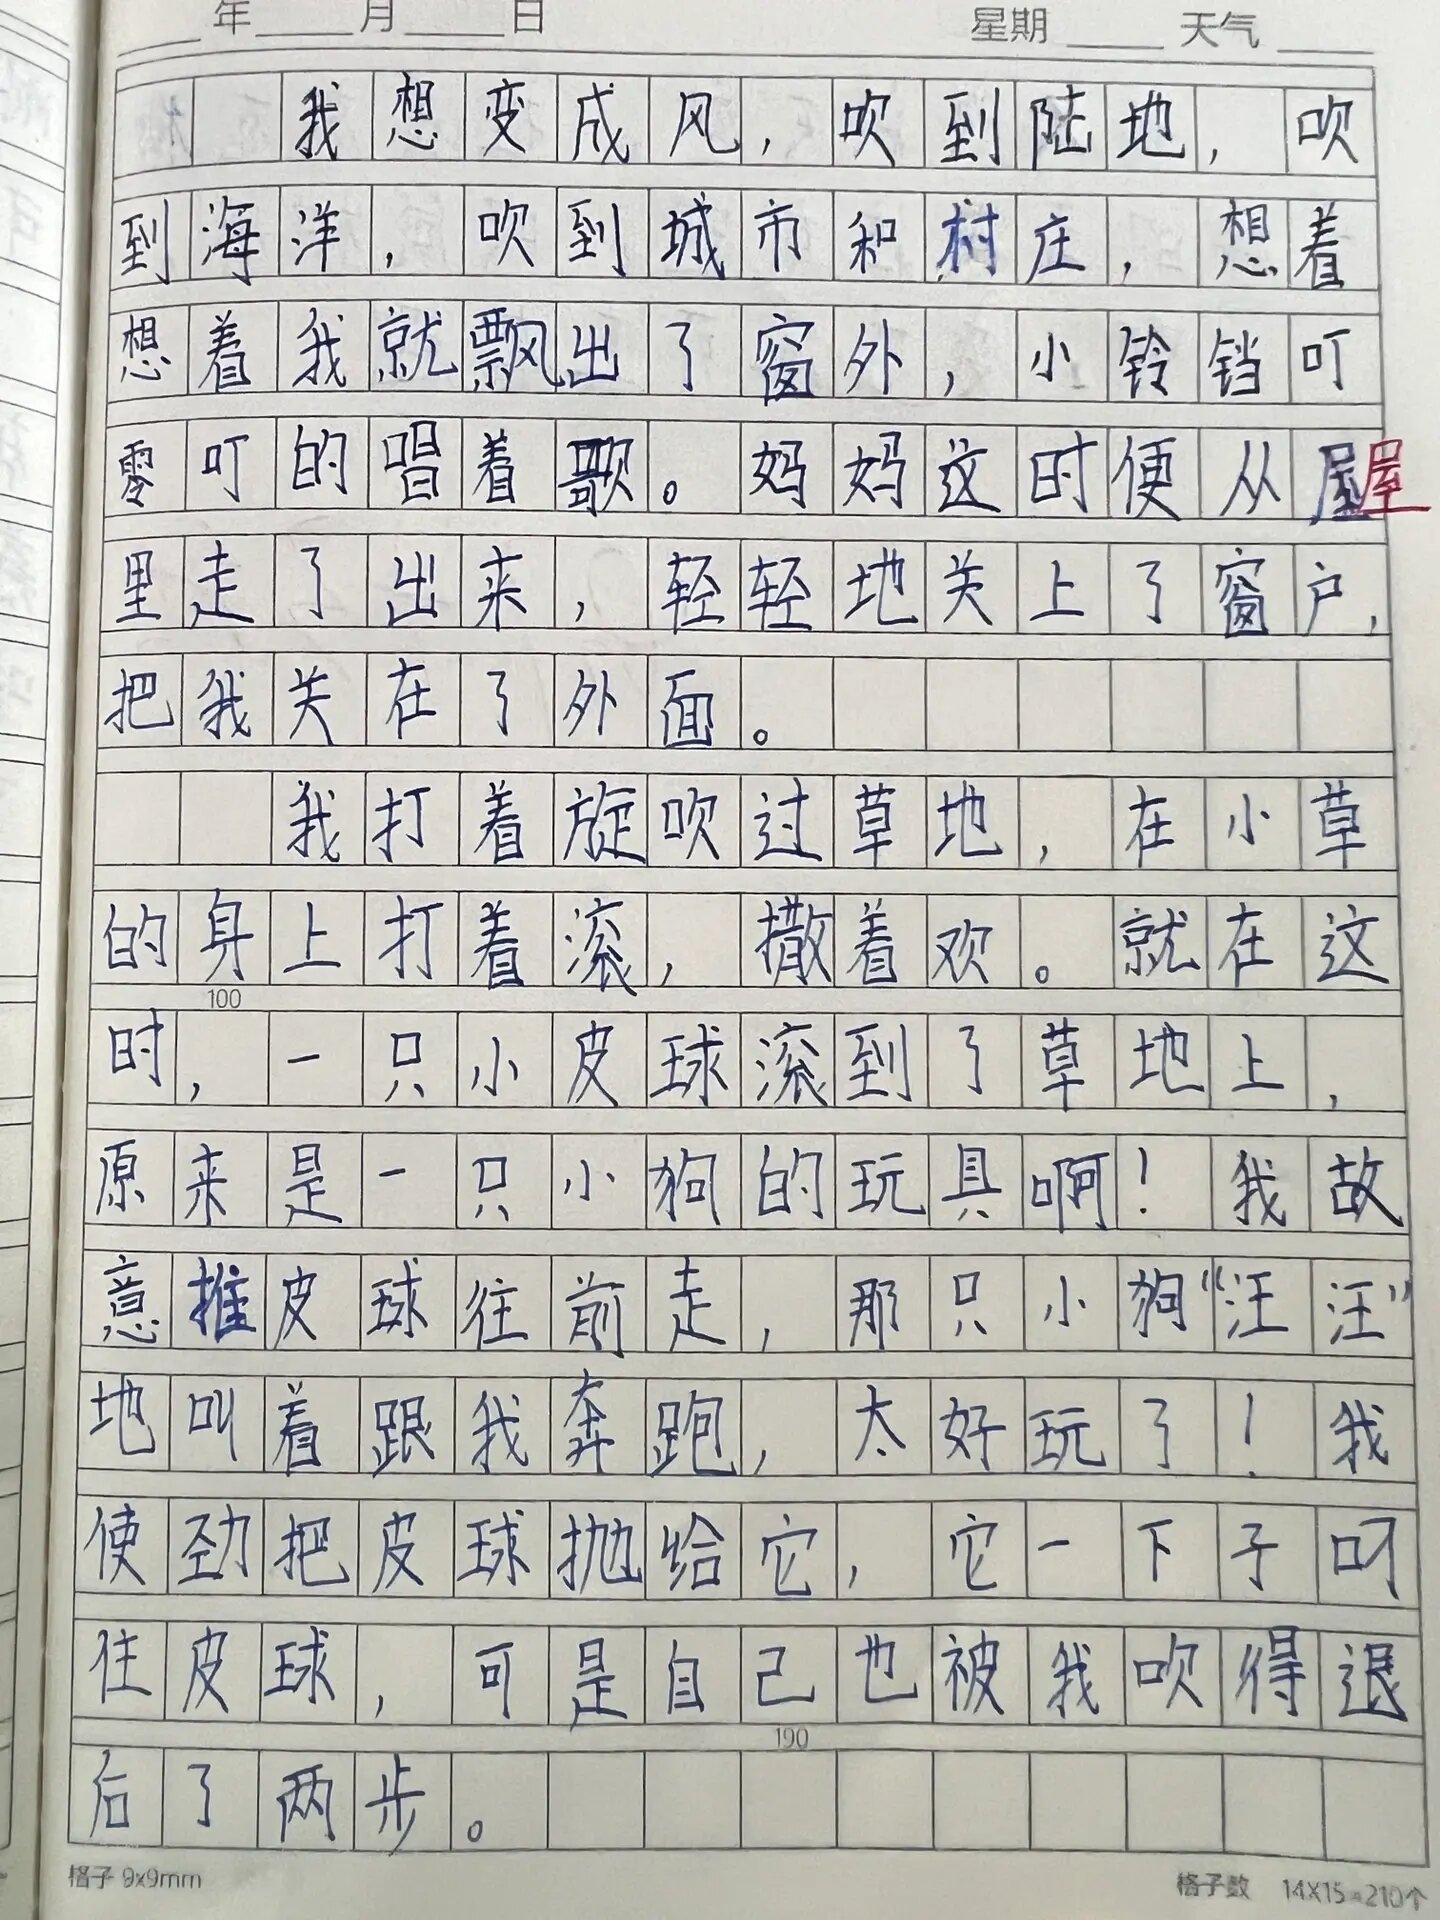 年 月 日 星期 天气
我想变成风，吹到陆地，吹
到海洋，吹到城市和村庄，想着
想着我就飘出了窗外，小铃铛叮
零叮的唱着歌。妈妈这时便从屋屋
里走了出来，轻轻地关上了窗户，
把我关在了外面。
我打着旋吹过草地，在小草
的身上打着滚，撒着欢。就在这
100
时，一只小皮球滚到了草地上，
原来是一只小狗的玩具啊！我故
意推皮球往前走，那只小狗“汪汪”
地叫着跟我奔跑，太好玩了！我
使劲把皮球抛给它，它一下子叼
住皮球，可是自己也被我吹得退
190
后了两步。
格子 9x9mm 格子数 14X15=210个